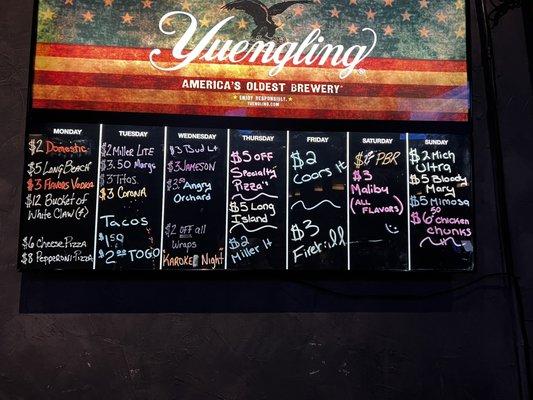 Yuengling
AMERICA'S OLDEST BREWERY
ENJOY RESPONSIBLY.
YUENGLING.COM
MONDAY
$2 Domestic
$5 Long Beach
$3 Flavors Vodka
$12 Bucket of
White Claw (4)
$6 Cheese Pizza
$8 Pepperoni Pizza
TUESDAY
$2 Miller LITE
$3.50 Margs
$3 Titos
$3 CORONA
Tacos
$1.50
$2.00 TO GO
WEDNESDAY
$3 Bud Lt
$3 JAMESON
Angry
Orchard
$2 OFF all
Wraps
KAROKE Night
THURSDAY
$5 OFF
Specialty
Pizza's
$5 Long
Island
$2
Miller lt
FRIDAY
$2
Coors lt
$3
Fireball
SATURDAY
PBR
$3
Malibu
(ALL
FLAVORS)
SUNDAY
$2 Mich
Ultra
$5 Bloody
Mary
$5 Mimosa
$6.50 chicken
chunks